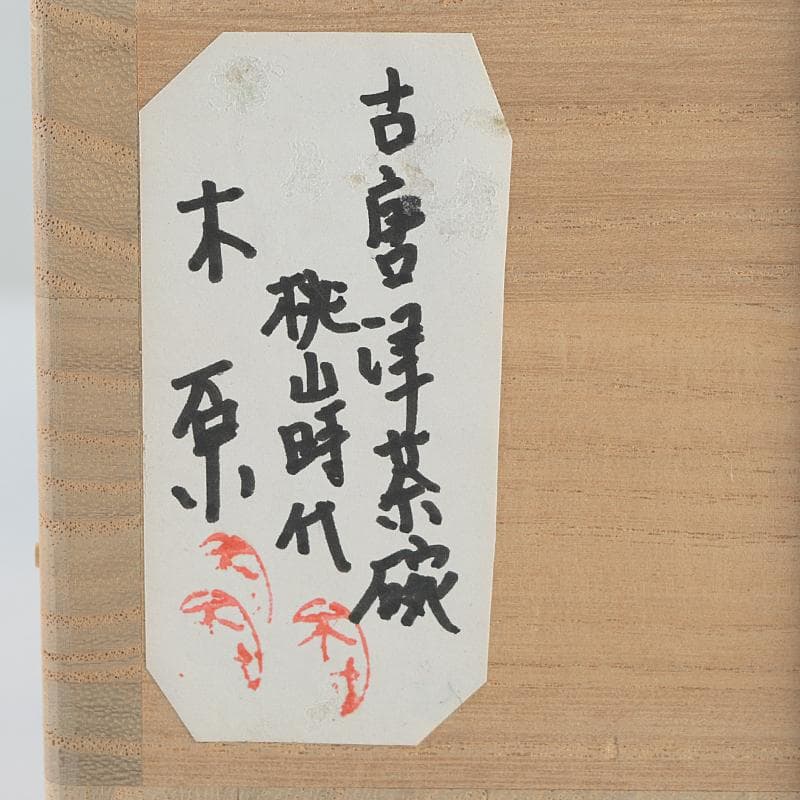 古唐津茶碗
桃山時代
木原